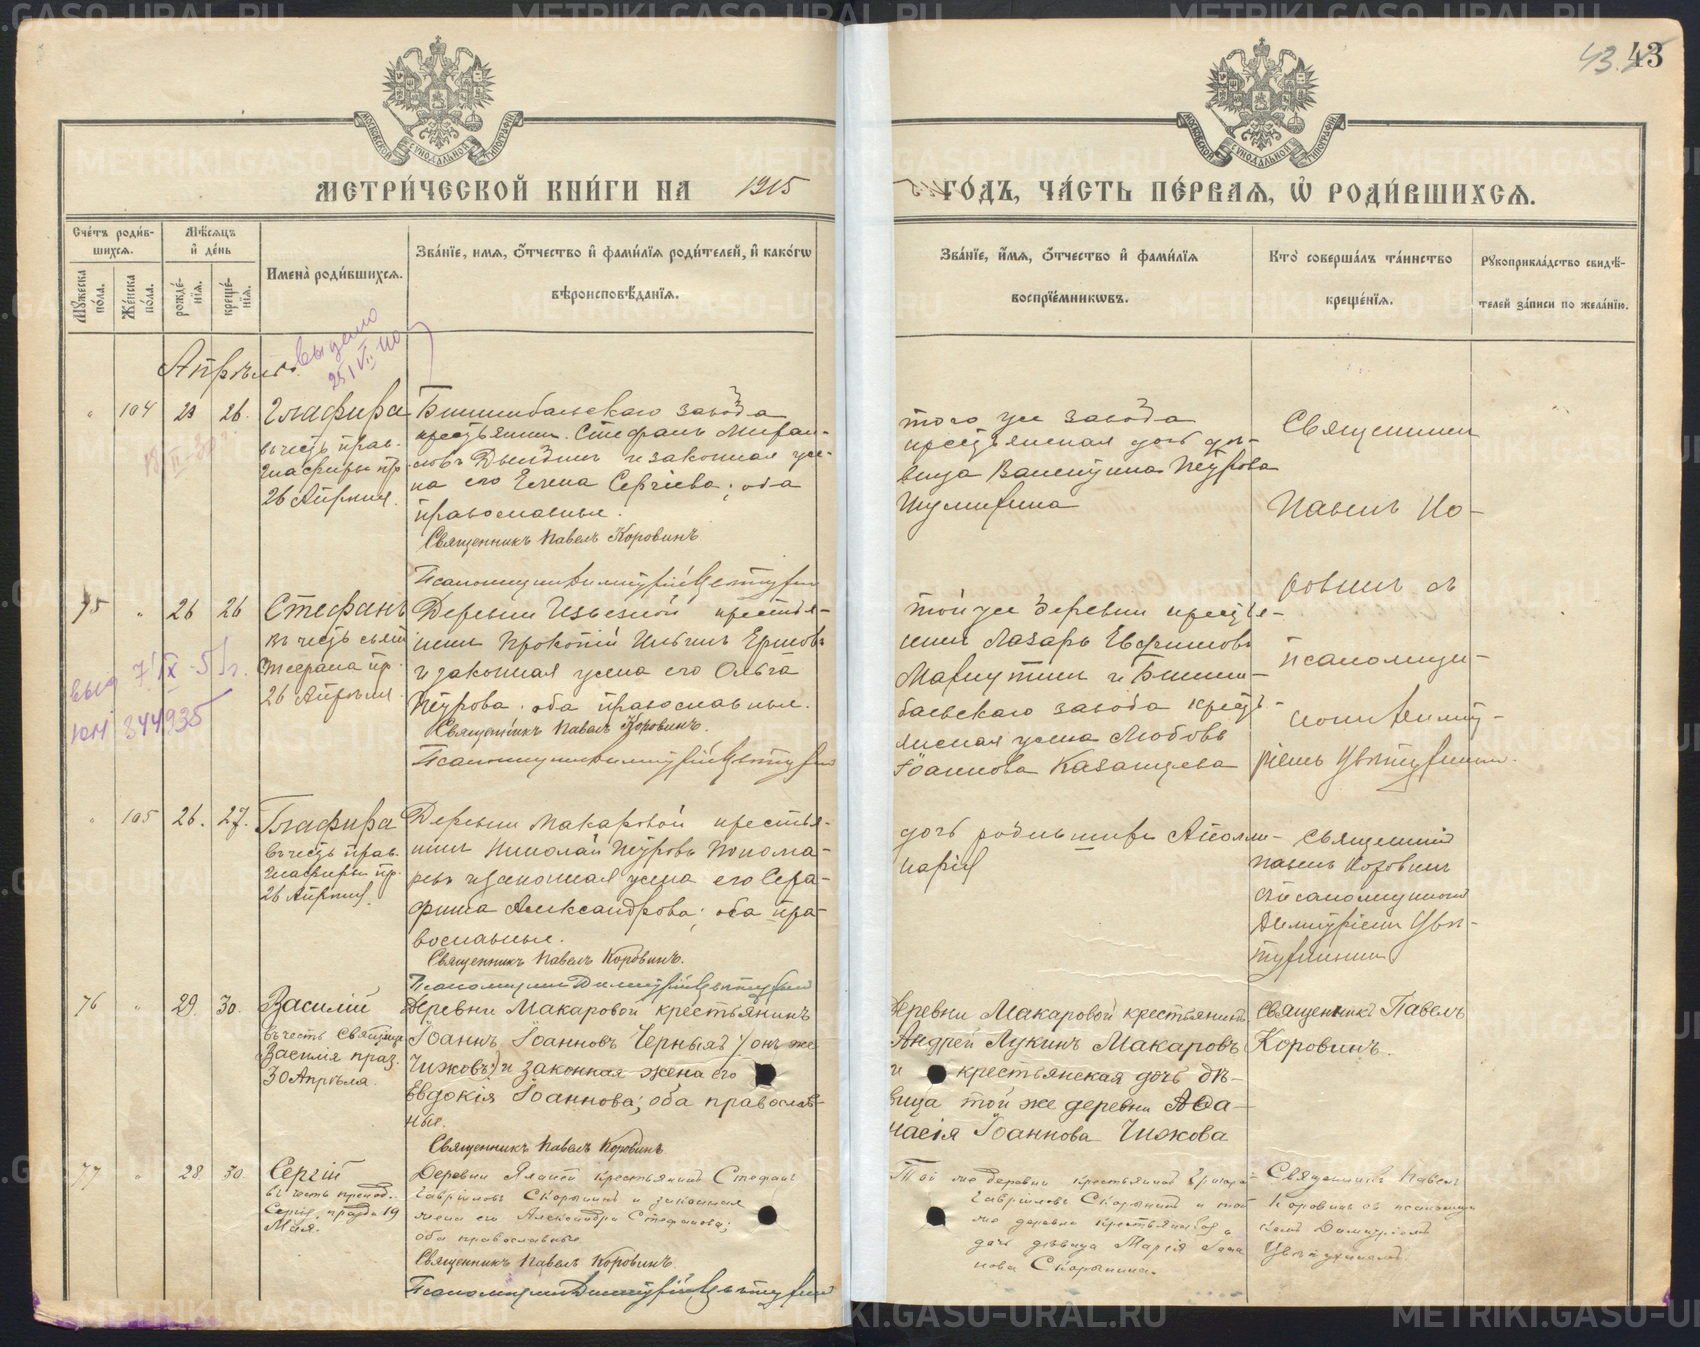 METRIKI.GASO-URAL.RU
43. 43
МОСКОВСКОЙ СѴНОДАЛЬНОЙ ТИПОГРАФІИ
МОСКОВСКОЙ СѴНОДАЛЬНОЙ ТИПОГРАФІИ
МЕТРИ́ЧЕСКОЙ КНИ́ГИ НА 1915
ГО́ДЪ, ЧА́СТЬ ПЕ́РВАЯ, Ѡ҆ РОДИ́ВШИХСЯ.
Сче́тъ роди́в-
шихся.
Мꙋ́жеска по́ла.
Же́нска по́ла.
Мѣ́сяцъ
и҆ де́нь
рожде́-
нїя.
креще́-
нїя.
Имена̀ роди́вшихся.
Зва́нїе, имя, ѻ҆́тчество и҆ фами́лїя роди́телей, и҆ како́гѡ
вѣроисповѣ́данїя.
Зва́нїе, и҆́мя, ѻ҆́тчество и҆ фами́лїя
воспрїе́мникѡвъ.
Кто̀ соверша́лъ та́инство
креще́нїя.
Рꙋкоприкла́дство свидѣ́-
телей за́писи по жела́нїю.
Апрѣль.
выдано
25/VII 40
" 104 23 26.
Глафира
въ честь прав.
Глафиры пр.
26 Апрѣля.
Бишимбаевскаго завода
крестьянинъ Стефанъ
и законная же-
на его Елена Сергіева; оба
православные.
Священникъ Павелъ Коровинъ
Псаломщикъ Димитрій Цвѣтухинъ
того же завода
крестьянская дочь дѣ-
вица Валентина Петрова
Священникъ
Павелъ Ко-
ровинъ съ
псаломщи-
комъ Димит-
ріемъ Цвѣтухинымъ.
75 " 26 26
Стефанъ
въ честь свят.
Стефана пр.
26 Апрѣля.
выд 7/IX-55 г.
ЮМ 344935
Деревни крестья-
нинъ Прокопій Ильинъ Ершовъ
и законная жена его Ольга
Петрова. оба православные.
Священникъ Павелъ Коровинъ.
Псаломщикъ Димитрій Цвѣтухинъ
той же деревни крестья-
нинъ Лазарь Евфимовъ
и Бишим-
баевскаго завода кресть-
янская жена Любовь
Іоаннова Казанцева
" 105 26. 27.
Глафира
въ честь прав.
Глафиры пр.
26 Апрѣля.
Деревни Макаровой крестья-
нинъ Николай Петровъ Понома-
ревъ и законная жена его Сера-
фима Александрова; оба пра-
вославные.
Священникъ Павелъ Коровинъ.
Псаломщикъ Димитрій Цвѣтухинъ
дочь Аполли-
нарія
Священникъ
Павелъ Коровинъ
съ псаломщикомъ
Димитріемъ Цвѣ-
тухинымъ
76 " 29. 30.
Василій
въ честь Святаго
Василія праз.
30 Апрѣля.
Деревни Макаровой крестьянинъ
Іоаннъ Іоанновъ Черныхъ (онъ же
Чижовъ) и законная жена его
Евдокія Іоаннова; оба православ-
ные.
Священникъ Павелъ Коровинъ
Деревни Макаровой крестьянинъ
Андрей Лукинъ Макаровъ
и крестьянская дочь дѣ-
вица той же деревни Аѳа-
насія Іоаннова Чижова
Священникъ Павелъ
Коровинъ.
77 " 28 30.
Сергій
въ честь препод.
Сергія, празд. 19
Мая.
Деревни крестьянинъ Стефанъ
Гавриловъ Скорынинъ и законная
жена его Александра Стефанова;
оба православные
Священникъ Павелъ Коровинъ.
Псаломщикъ Димитрій Цвѣтухинъ
Той же деревни крестьянинъ
Гавриловъ Скорынинъ и той
же деревни крестьянская
дочь дѣвица Марія
Скорынина.
Священникъ Павелъ
Коровинъ съ псаломщи-
комъ Димитріемъ
Цвѣтухинымъ.